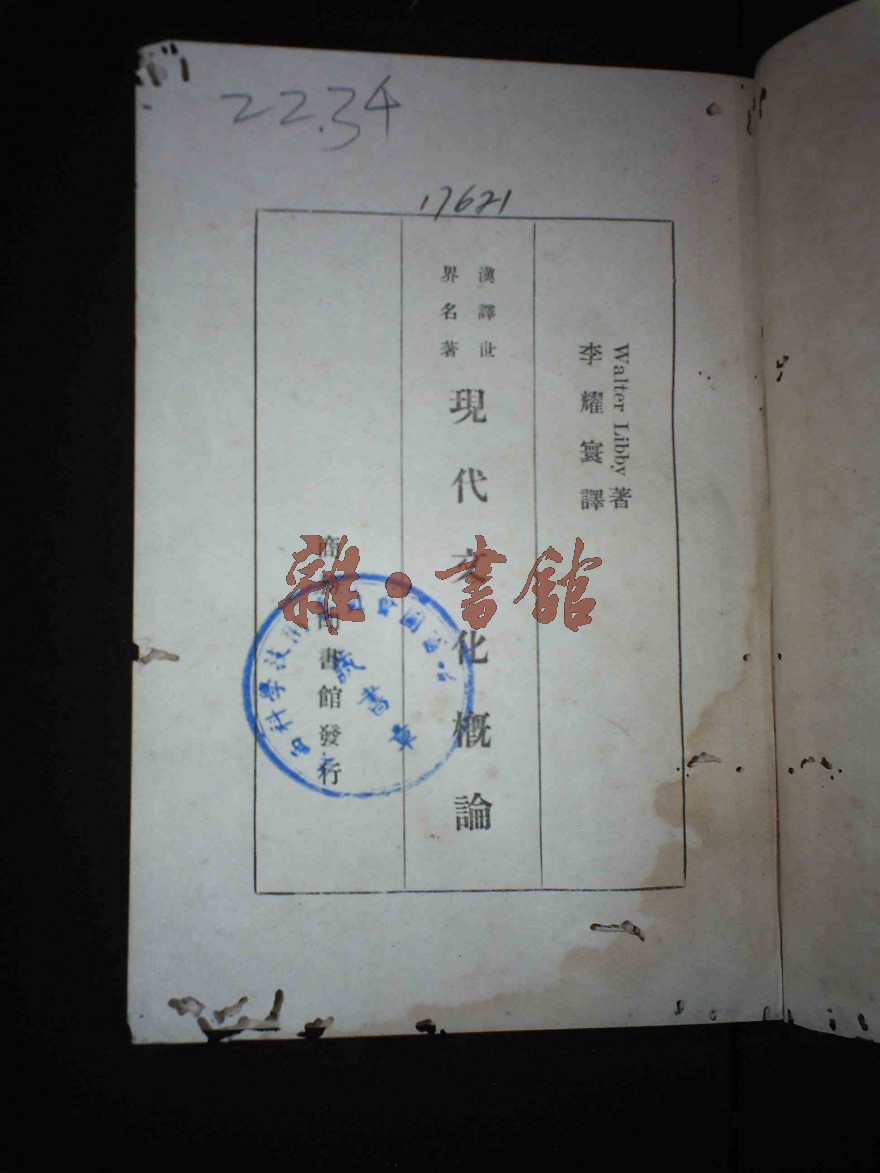 22.34
17621
Walter Libby 著
李耀寰譯
漢譯世
界名著
現代文化概論
商務印書館發行
雜·書館
藏書章